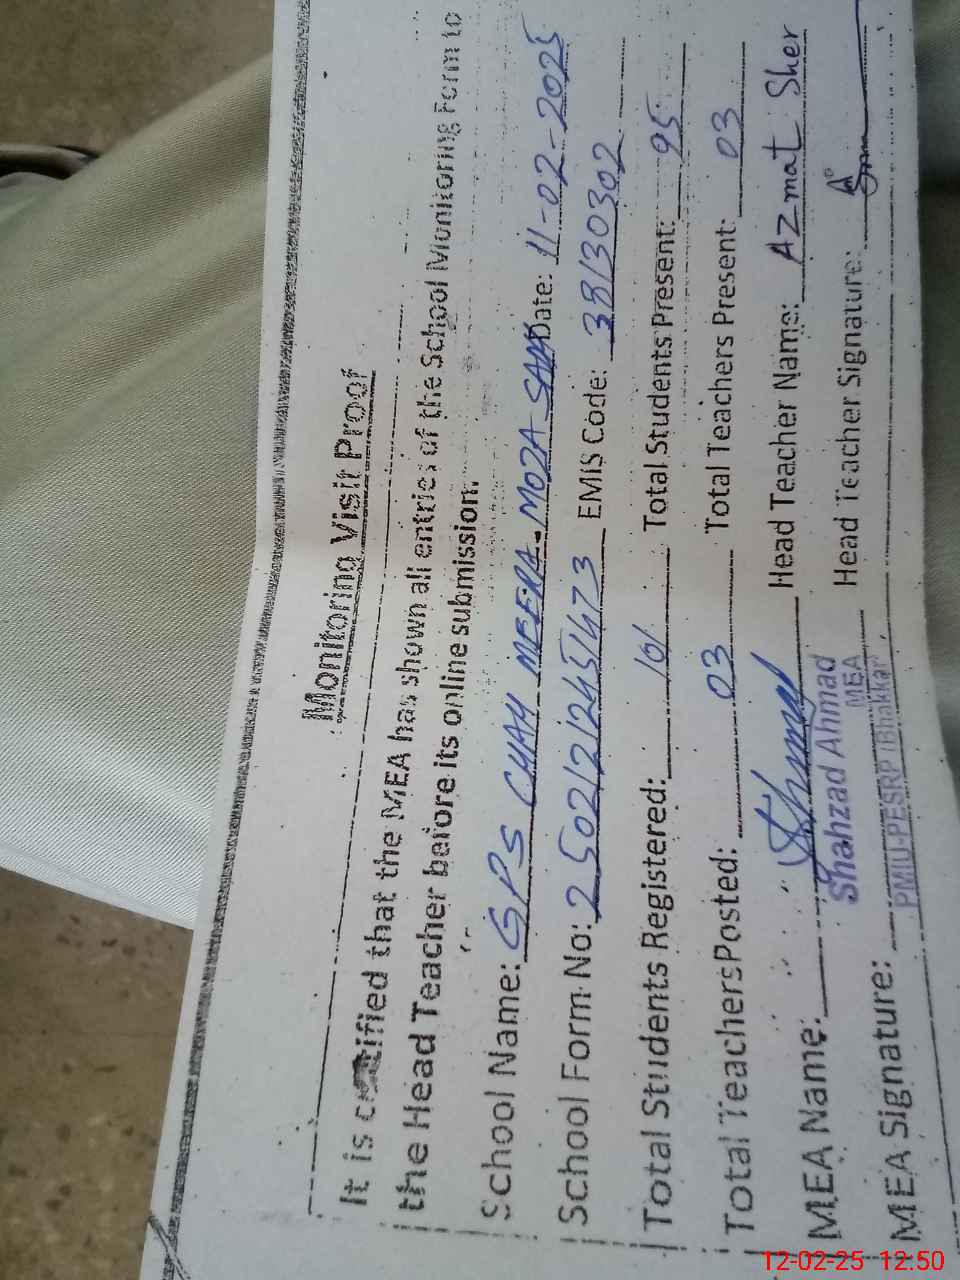 Monitoring Visit Proof
It is certified that the MEA has shown all entries of the School Monitoring Form to
the Head Teacher before its online submission.
School Name: GPS CHAH MEERA MOZA SAM Date: 11-02-2025
School Form No: 25021212451473 EMIS Code: 38130302
Total Students Registered: 101 Total Students Present: 95
Total Teachers Posted: 03 Total Teachers Present: 03
MEA Name: Head Teacher Name: Azmat Sher
Shahzad Ahmad
MEA
PMIU-PESRP (Bhakkar)
MEA Signature: Head Teacher Signature:
12-02-25 12.50